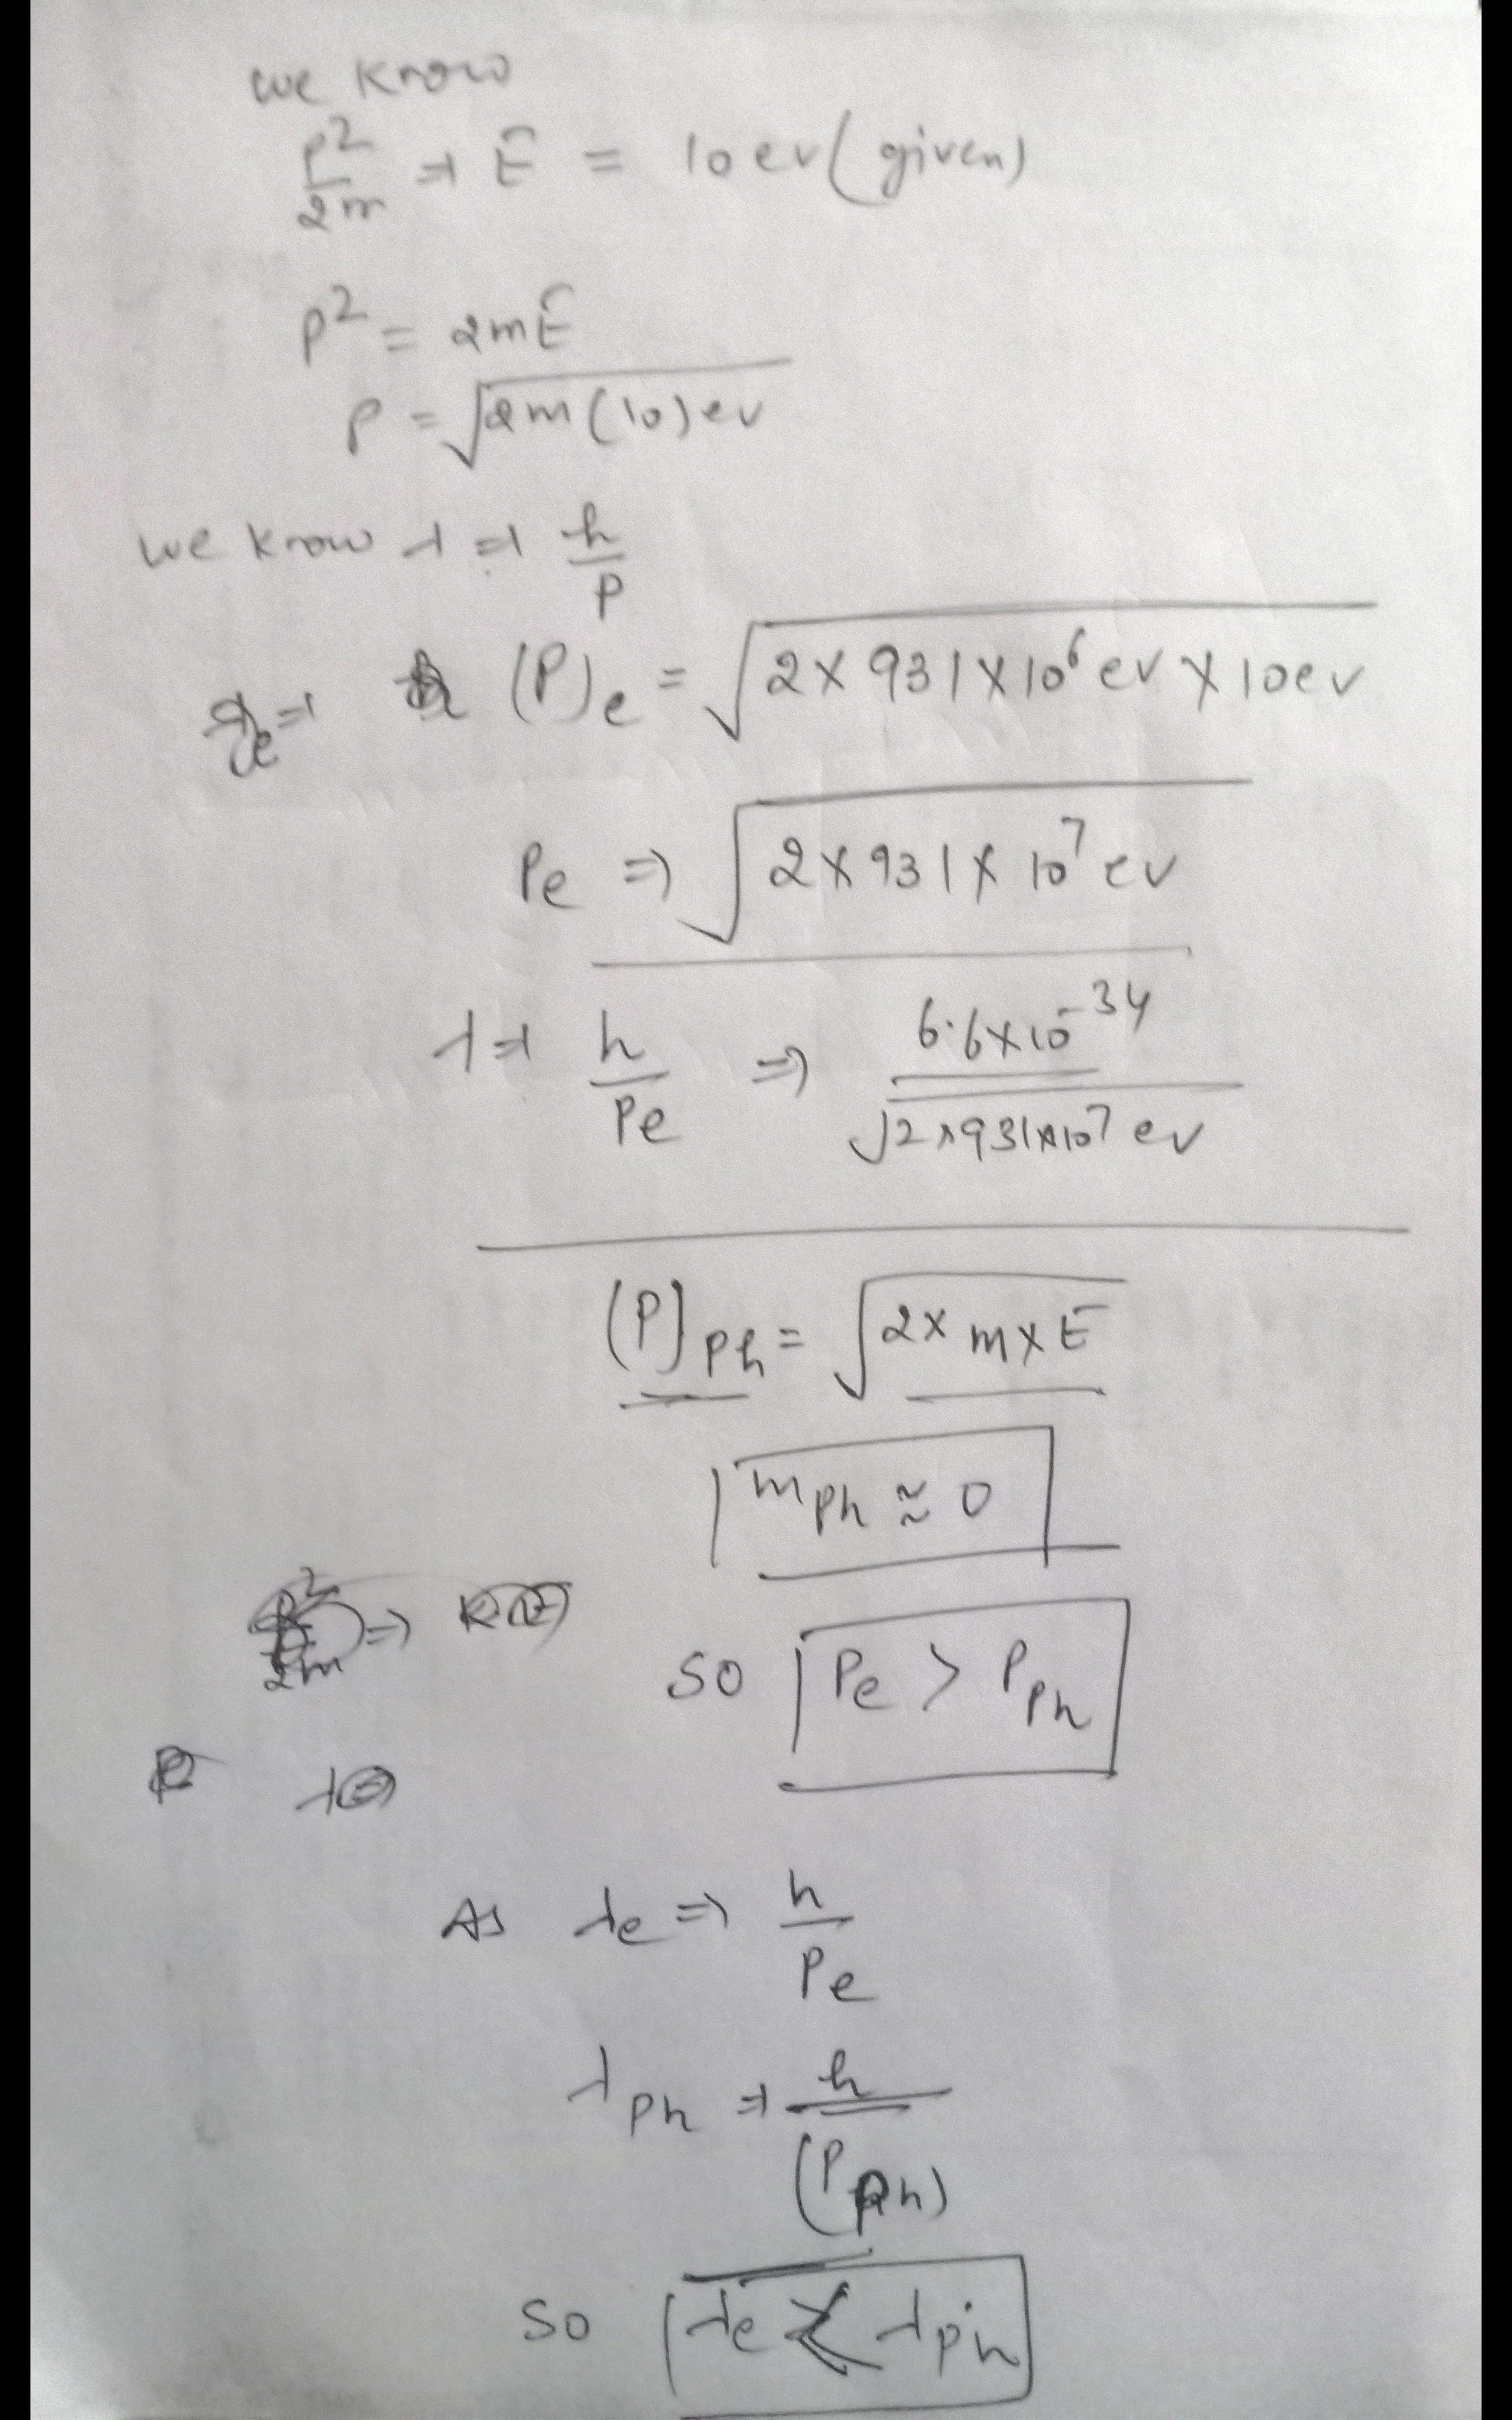 we know
p²/2m ⇒ E = 10 ev (given)
p² = 2mE
p = √2m(10)ev
we know λ ⇒ h/p
(P)e = √2×931×10⁶ ev × 10ev
Pe ⇒ √2×931×10⁷ ev
λ ⇒ h/Pe ⇒ 6.6×10⁻³⁴/√2×931×10⁷ ev
(P)ph = √2×m×E
mph ≈ 0
so Pe > Pph
As λe ⇒ h/Pe
λph ⇒ h/(Pph)
so λe < λph